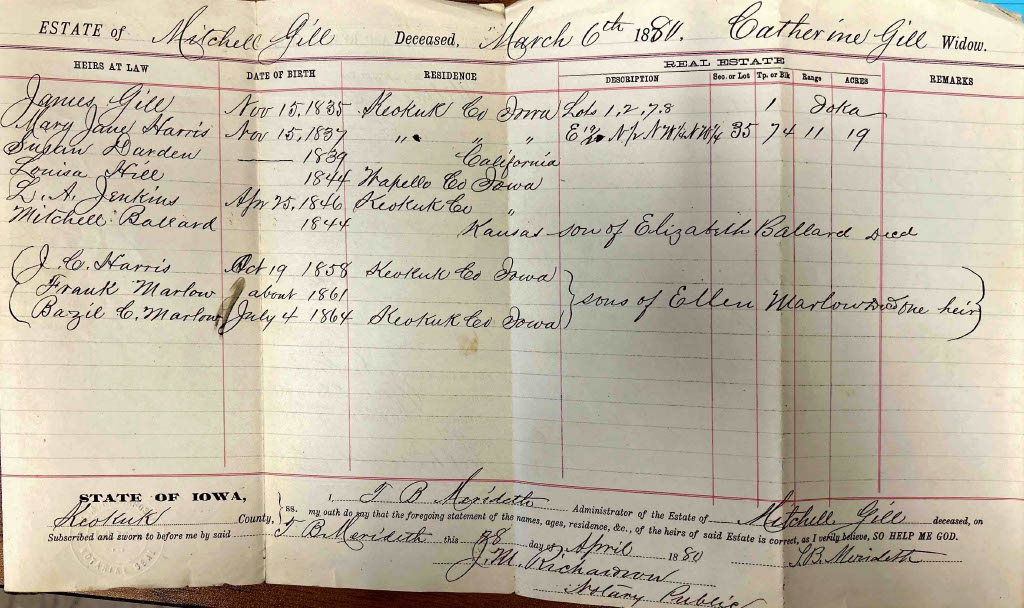 ESTATE of Mitchell Gill Deceased, March 6th 1880. Catherine Gill Widow.
REAL ESTATE
HEIRS AT LAW DATE OF BIRTH RESIDENCE DESCRIPTION Sec. or Lot Tp. or Blk Range ACRES REMARKS
James Gill Nov 15, 1835 Keokuk Co Iowa Lots 1, 2, 7, 8 1 Ioka
Mary Jane Harris Nov 15, 1837 " " " E 1/2 N/2 NW 1/4 NW 1/4 35 74 11 19
Susan Darden — 1839 California
Louisa Hill 1844 Wapello Co Iowa
L. A. Jenkins Apr 25, 1846 Keokuk Co "
Mitchell Ballard 1844 Kansas son of Elizabeth Ballard Decd
J. C. Harris Oct 19 1858 Keokuk Co Iowa
Frank Marlow about 1861 sons of Ellen Marlow Decd one heir
Bazil C. Marlow July 4 1864 Keokuk Co Iowa
STATE OF IOWA,
Keokuk County, ss. I, T B Merideth Administrator of the Estate of Mitchell Gill deceased, on
my oath do say that the foregoing statement of the names, ages, residence, &c., of the heirs of said Estate is correct, as I verily believe, SO HELP ME GOD.
Subscribed and sworn to before me by said T B Merideth this 28 day of April 1880 T. B. Merideth
J. M. Richardson
Notary Public
NOTARIAL SEAL